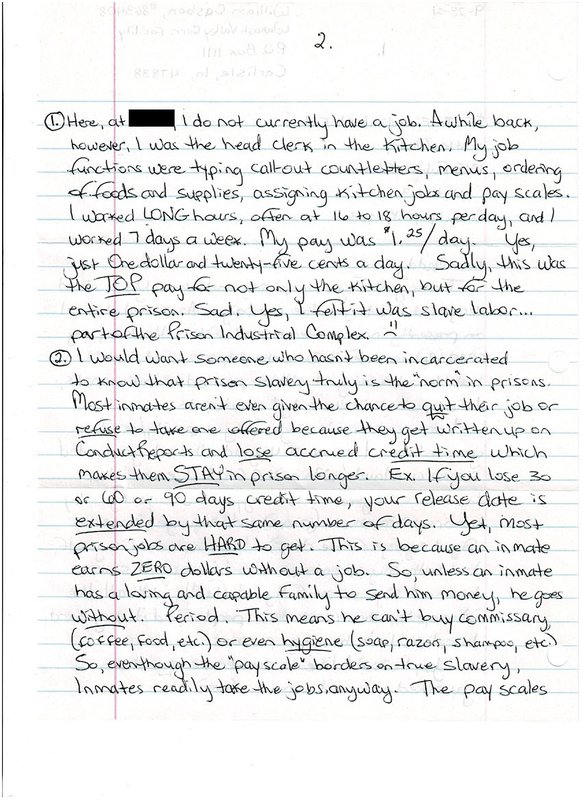 2.
① Here, at I do not currently have a job. Awhile back,
however, I was the head clerk in the Kitchen. My job
functions were typing call-out countletters, menus, ordering
of foods and supplies, assigning Kitchen jobs and pay scales.
I worked LONG hours, often at 16 to 18 hours per day, and I
worked 7 days a week. My pay was $1.25/day. Yes,
just One dollar and twenty-five cents a day. Sadly, this was
the TOP pay for not only the Kitchen, but for the
entire prison. Sad. Yes, I felt it was slave labor...
part of the Prison Industrial Complex.
② I would want someone who hasn't been incarcerated
to know that prison slavery truly is the "norm" in prisons.
Most inmates aren't even given the chance to quit their job or
refuse to take one offered because they get written up on
Conduct Reports and lose accrued credit time which
makes them STAY in prison longer. Ex. If you lose 30
or 60 or 90 days credit time, your release date is
extended by that same number of days. Yet, most
prison jobs are HARD to get. This is because an inmate
earns ZERO dollars without a job. So, unless an inmate
has a loving and capable family to send him money, he goes
without. Period. This means he can't buy commissary,
(coffee, food, etc.) or even hygiene (soap, razors, shampoo, etc.)
So, eventhough the "payscale" borders on true slavery,
Inmates readily take the jobs, anyway. The pay scales